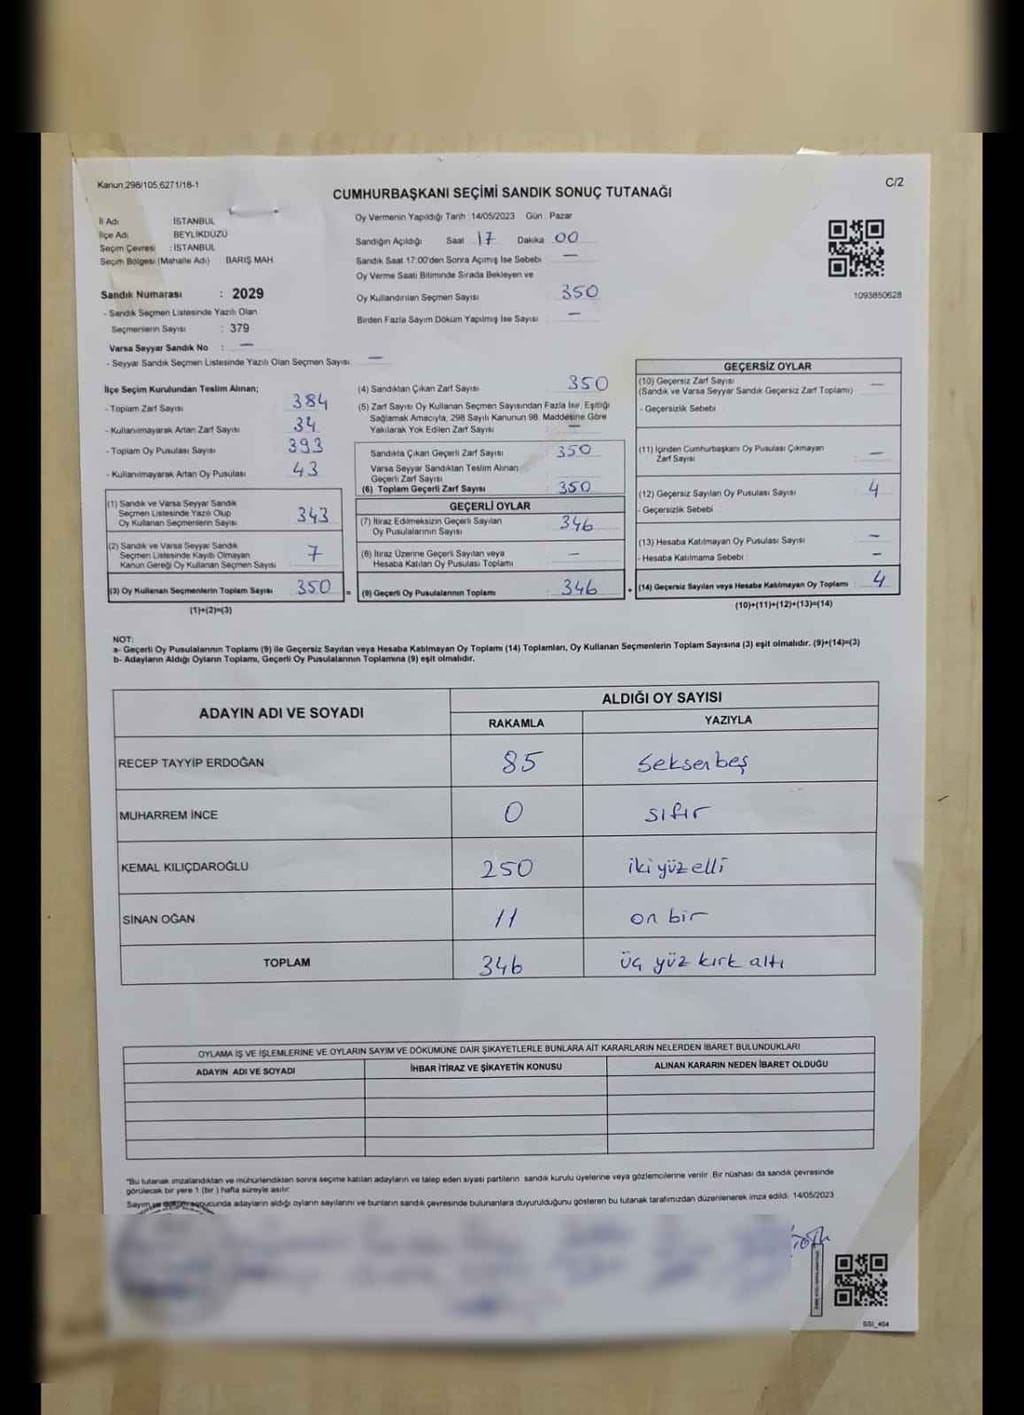 Kanun,298/105,6271/18-1
C/2
CUMHURBAŞKANI SEÇİMİ SANDIK SONUÇ TUTANAĞI
İl Adı İSTANBUL
İlçe Adı BEYLİKDÜZÜ
Seçim Çevresi : İSTANBUL
Seçim Bölgesi (Mahalle Adı) : BARIŞ MAH.
Sandık Numarası : 2029
- Sandık Seçmen Listesinde Yazılı Olan
Seçmenlerin Sayısı : 379
Varsa Seyyar Sandık No : —
- Seyyar Sandık Seçmen Listesinde Yazılı Olan Seçmen Sayısı : —
Oy Vermenin Yapıldığı Tarih :14/05/2023 Gün : Pazar
Sandığın Açıldığı Saat 17 Dakika 00
Sandık Saat 17:00'den Sonra Açılmış İse Sebebi —
Oy Verme Saati Bitiminde Sırada Bekleyen ve
Oy Kullandırılan Seçmen Sayısı 350
Birden Fazla Sayım Döküm Yapılmış İse Sayısı —
1093850628
İlçe Seçim Kurulundan Teslim Alınan;
- Toplam Zarf Sayısı 384
- Kullanılmayarak Artan Zarf Sayısı 34
- Toplam Oy Pusulası Sayısı 393
- Kullanılmayarak Artan Oy Pusulası 43
(1) Sandık ve Varsa Seyyar Sandık
Seçmen Listesinde Yazılı Olup
Oy Kullanan Seçmenlerin Sayısı 343
(2) Sandık ve Varsa Seyyar Sandık
Seçmen Listesinde Kayıtlı Olmayan
Kanun Gereği Oy Kullanan Seçmen Sayısı 7
(3) Oy Kullanan Seçmenlerin Toplam Sayısı 350 =
(1)+(2)=(3)
(4) Sandıktan Çıkan Zarf Sayısı 350
(5) Zarf Sayısı Oy Kullanan Seçmen Sayısından Fazla İse, Eşitliği
Sağlamak Amacıyla, 298 Sayılı Kanunun 98. Maddesine Göre
Yakılarak Yok Edilen Zarf Sayısı —
Sandıkta Çıkan Geçerli Zarf Sayısı 350
Varsa Seyyar Sandıktan Teslim Alınan
Geçerli Zarf Sayısı
(6) Toplam Geçerli Zarf Sayısı 350
GEÇERLİ OYLAR
(7) İtiraz Edilmeksizin Geçerli Sayılan
Oy Pusulalarının Sayısı 346
(8) İtiraz Üzerine Geçerli Sayılan veya
Hesaba Katılan Oy Pusulası Toplamı —
(9) Geçerli Oy Pusulalarının Toplamı 346 +
GEÇERSİZ OYLAR
(10) Geçersiz Zarf Sayısı
(Sandık ve Varsa Seyyar Sandık Geçersiz Zarf Toplamı) —
- Geçersizlik Sebebi :
(11) İçinden Cumhurbaşkanı Oy Pusulası Çıkmayan
Zarf Sayısı —
(12) Geçersiz Sayılan Oy Pusulası Sayısı 4
- Geçersizlik Sebebi :
(13) Hesaba Katılmayan Oy Pusulası Sayısı —
- Hesaba Katılmama Sebebi : —
(14) Geçersiz Sayılan veya Hesaba Katılmayan Oy Toplamı 4
(10)+(11)+(12)+(13)=(14)
NOT:
a- Geçerli Oy Pusulalarının Toplamı (9) ile Geçersiz Sayılan veya Hesaba Katılmayan Oy Toplamı (14) Toplamları, Oy Kullanan Seçmenlerin Toplam Sayısına (3) eşit olmalıdır. (9)+(14)=(3)
b- Adayların Aldığı Oyların Toplamı, Geçerli Oy Pusulalarının Toplamına (9) eşit olmalıdır.
ADAYIN ADI VE SOYADI
ALDIĞI OY SAYISI
RAKAMLA YAZIYLA
RECEP TAYYİP ERDOĞAN 85 seksenbeş
MUHARREM İNCE 0 sıfır
KEMAL KILIÇDAROĞLU 250 iki yüz elli
SİNAN OĞAN 11 on bir
TOPLAM 346 üç yüz kırk altı
OYLAMA İŞ VE İŞLEMLERİNE VE OYLARIN SAYIM VE DÖKÜMÜNE DAİR ŞİKAYETLERLE BUNLARA AİT KARARLARIN NELERDEN İBARET BULUNDUKLARI
ADAYIN ADI VE SOYADI İHBAR İTİRAZ VE ŞİKAYETİN KONUSU ALINAN KARARIN NEDEN İBARET OLDUĞU
*Bu tutanak imzalandıktan ve mühürlendikten sonra seçime katılan adayların ve talep eden siyasi partilerin sandık kurulu üyelerine veya gözlemcilerine verilir. Bir nüshası da sandık çevresinde
görülecek bir yere 1 (bir) hafta süreyle asılır.
Sayım ve döküm sonucunda adayların aldığı oyların sayılarını ve bunların sandık çevresinde bulunanlara duyurulduğunu gösteren bu tutanak tarafımızdan düzenlenerek imza edildi. 14/05/2023